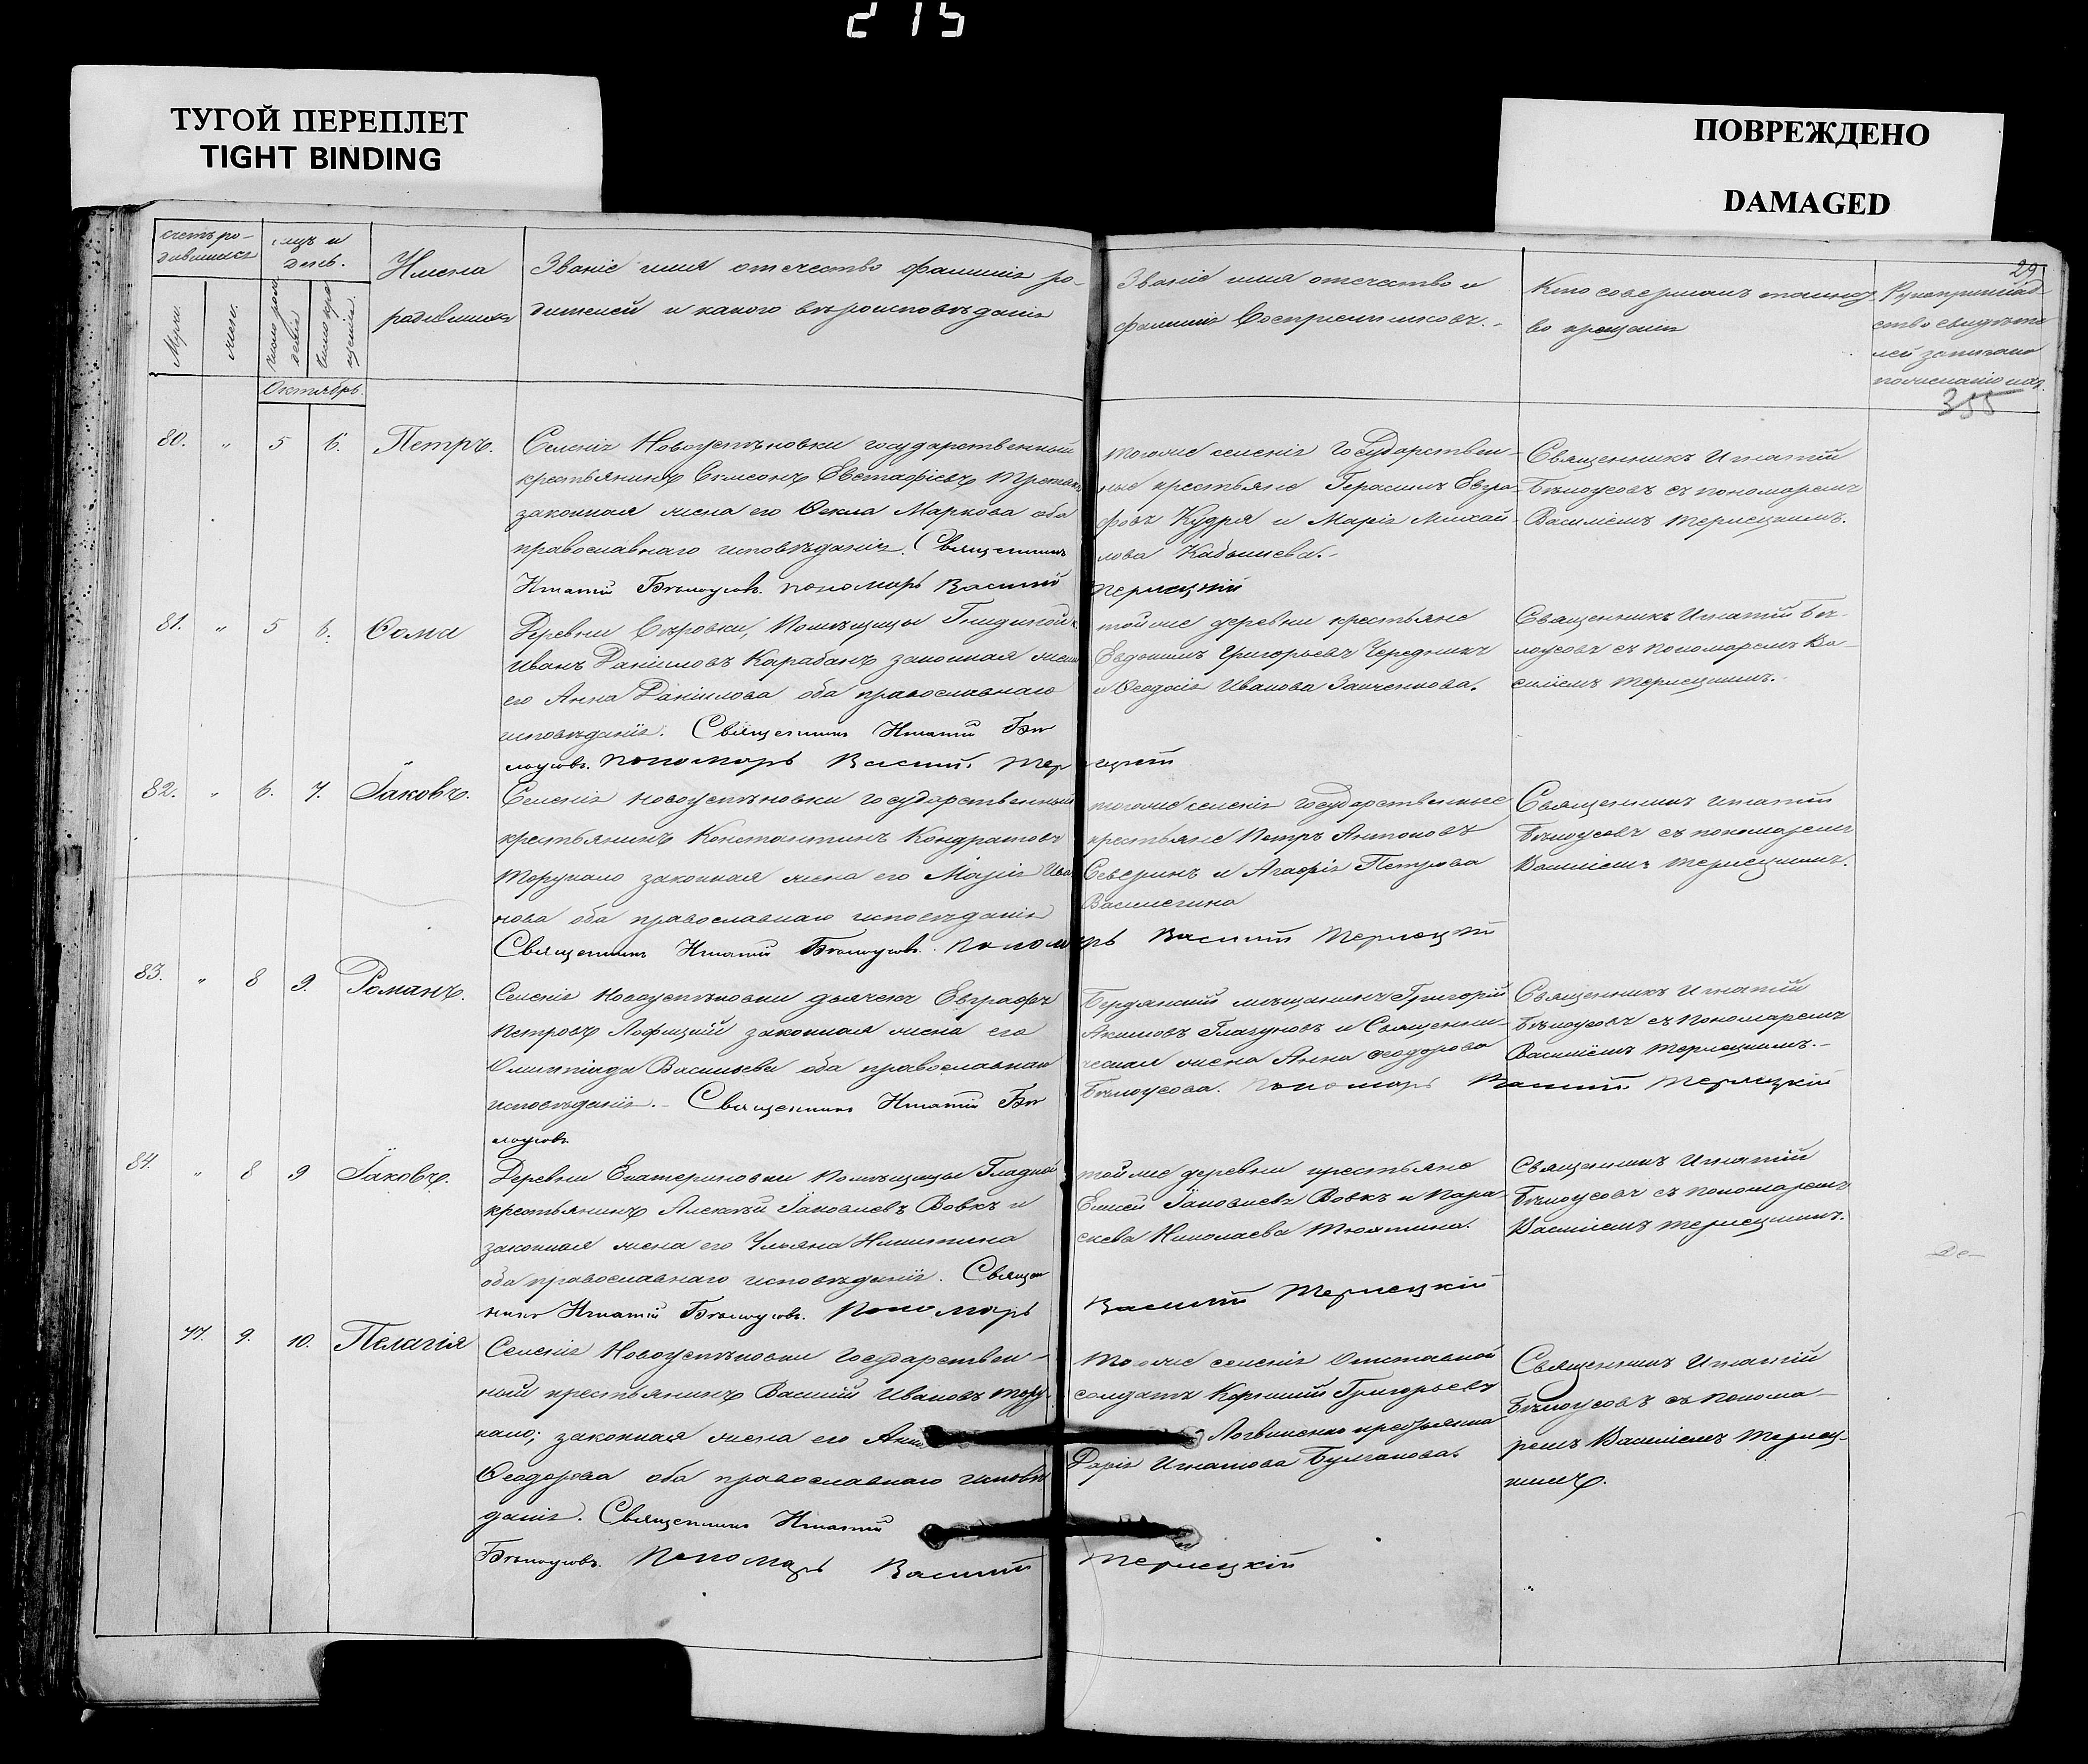 215
ТУГОЙ ПЕРЕПЛЕТ
TIGHT BINDING
ПОВРЕЖДЕНО
DAMAGED
29
счетъ ро-
дившихся
день.
Муж.
жен.
Октябрь.
Имена
родившихся
Званіе имя отечество фамилія ро-
дителей и какого вѣроисповѣданія
Званіе имя отечество и
фамилія Воспріемниковъ.
Кто совершалъ таинст
во крещенія
Рукоприклад-
ство свидѣте
лей записано
по желанію
355
80. " 5 6. Петръ.
Селенія Новоуспѣновки государственный
крестьянинъ Симеонъ Евстафіевъ
законная жена его Ѳекла Маркова оба
православнаго исповѣданія. Священникъ
Игнатій Бѣлоусовъ. пономарь Василій
тогоже селенія Государствен-
ные крестьяне Герасимъ Евгра-
фовъ Кудря и Марія Михай-
лова
Терлецкій
Священникъ Игнатій
Бѣлоусовъ съ пономаремъ
Василіемъ Терлецкимъ.
81. " 5 6. Ѳома
Деревни Помѣщицы
Иванъ Даніиловъ Карабанъ законная жена
его Анна Данілова оба православнаго
исповѣданія. Священникъ Игнатій Бѣ
лоусовъ. пономарь Василій Тер
тойже деревни крестьяне
Евдокимъ Григорьевъ Чередникъ
и Ѳеодосія Иванова Заиченкова.
лецкій
Священникъ Игнатій Бѣ-
лоусовъ съ пономаремъ Ва-
силіемъ Терлецкимъ.
82. " 6. 7. Іаковъ.
Селенія Новоуспѣновки государственный
крестьянинъ Константинъ Кондратовъ
законная жена его Марія Ива
нова оба православнаго исповѣданія
Священникъ Игнатій Бѣлоусовъ. Поном
тогоже селенія Государственные
крестьяне Петръ Антоновъ
Северинъ и Агафія Петрова
арь Василій Терлецкій
Священникъ Игнатій
Бѣлоусовъ съ пономаремъ
Василіемъ Терлецкимъ.
83. " 8 9. Романъ.
Селенія Новоуспѣновки дьячекъ Евграфъ
Петровъ Лофицкій законная жена его
Олимпіада Васильева оба православнаго
исповѣданія.- Священникъ Игнатій Бѣ
лоусовъ
Бердянскій мѣщанинъ Григорій
Акимовъ Глазуновъ и Священни-
ческая жена Анна Ѳеодорова
Бѣлоусова. Пономарь Василій Терлецкій
Священникъ Игнатій
Бѣлоусовъ съ Пономаремъ
Василіемъ Терлецкимъ.-
84. " 8 9 Іаковъ.
Деревни Екатериновки Помѣщицы Гладкой
крестьянинъ Алексѣй Іаковлевъ Вовкъ и
законная жена его Ульяна Никитина
оба православнаго исповѣданія. Священ
никъ Игнатій Бѣлоусовъ. Пономарь
тойже деревни крестьяне
Елисей Іаковлевъ Вовкъ и Пара-
скева Николаева
Василій Терлецкій
Священникъ Игнатій
Бѣлоусовъ съ пономаремъ
Василіемъ Терлецкимъ.
77. 9. 10. Пелагія
Селенія Новоуспѣновки Государствен-
ный крестьянинъ Василій Ивановъ
законная жена его Анна
Ѳеодорова оба православнаго исповѣ
данія. Священникъ Игнатій
Бѣлоусовъ. Пономарь Василій
Тогоже селенія Отставной
солдатъ Корнилій Григорьевъ
Логвиненко крестьянка
Дарія Игнатова Булгакова.
Терлецкій
Священникъ Игнатій
Бѣлоусовъ съ Понома-
ремъ Василіемъ Терлец-
кимъ.